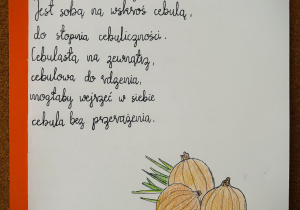 Jest sobą na wskroś cebulą,
do stopnia cebuliczności.
Cebulasta na zewnątrz,
cebulowa do rdzenia,
mogłaby wejrzeć w siebie
cebula bez przerażenia.